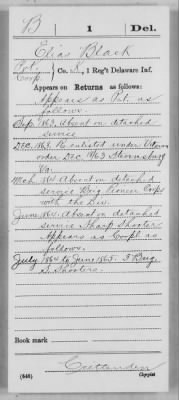 B 1 Del.
Elias Black
Pvt. Corp, Co. K, 1 Reg't Delaware Inf.
Appears on Returns as follows:
Appears as Pvt. as
follows.
Sep. 1863. Absent on detached
service
Dec. 1863. Re enlisted under
order Dec. 1863 Stevensburg
Va.
Mch. 1864 Absent on detached
service Brig Pioneer Corps
with the Div.
June 1864. Absent on detached
service Sharp Shooter
Appears as Corpl. as
follows.
July 1864 to June 1865.
S. Shooters.
Book mark
Crittenden
(546) Copyist